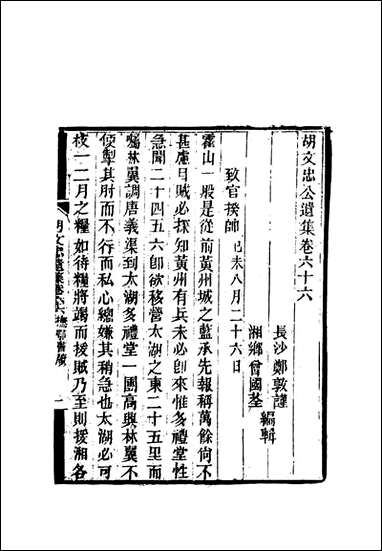 胡文忠公遺集卷六十六
長沙鄭敦謹
湘鄉曾國荃
編輯
致官揆帥己未八月二十六日
霍山一股是從前黃州城之藍承先報稱萬餘尙不
甚慮日賊必探知黃州有兵未必卽來惟多禮堂性
急聞二十四五六卽欲移營太湖之東二十五里而
囑林翼調唐義渠到太湖多禮堂一團高興林翼不
便掣其肘而不行而私心總嫌其稍急也太湖必可
枝一二月之糧如待糧將竭而援賊乃至則援湘各
胡文忠遺集卷六六 撫鄂書牘 一